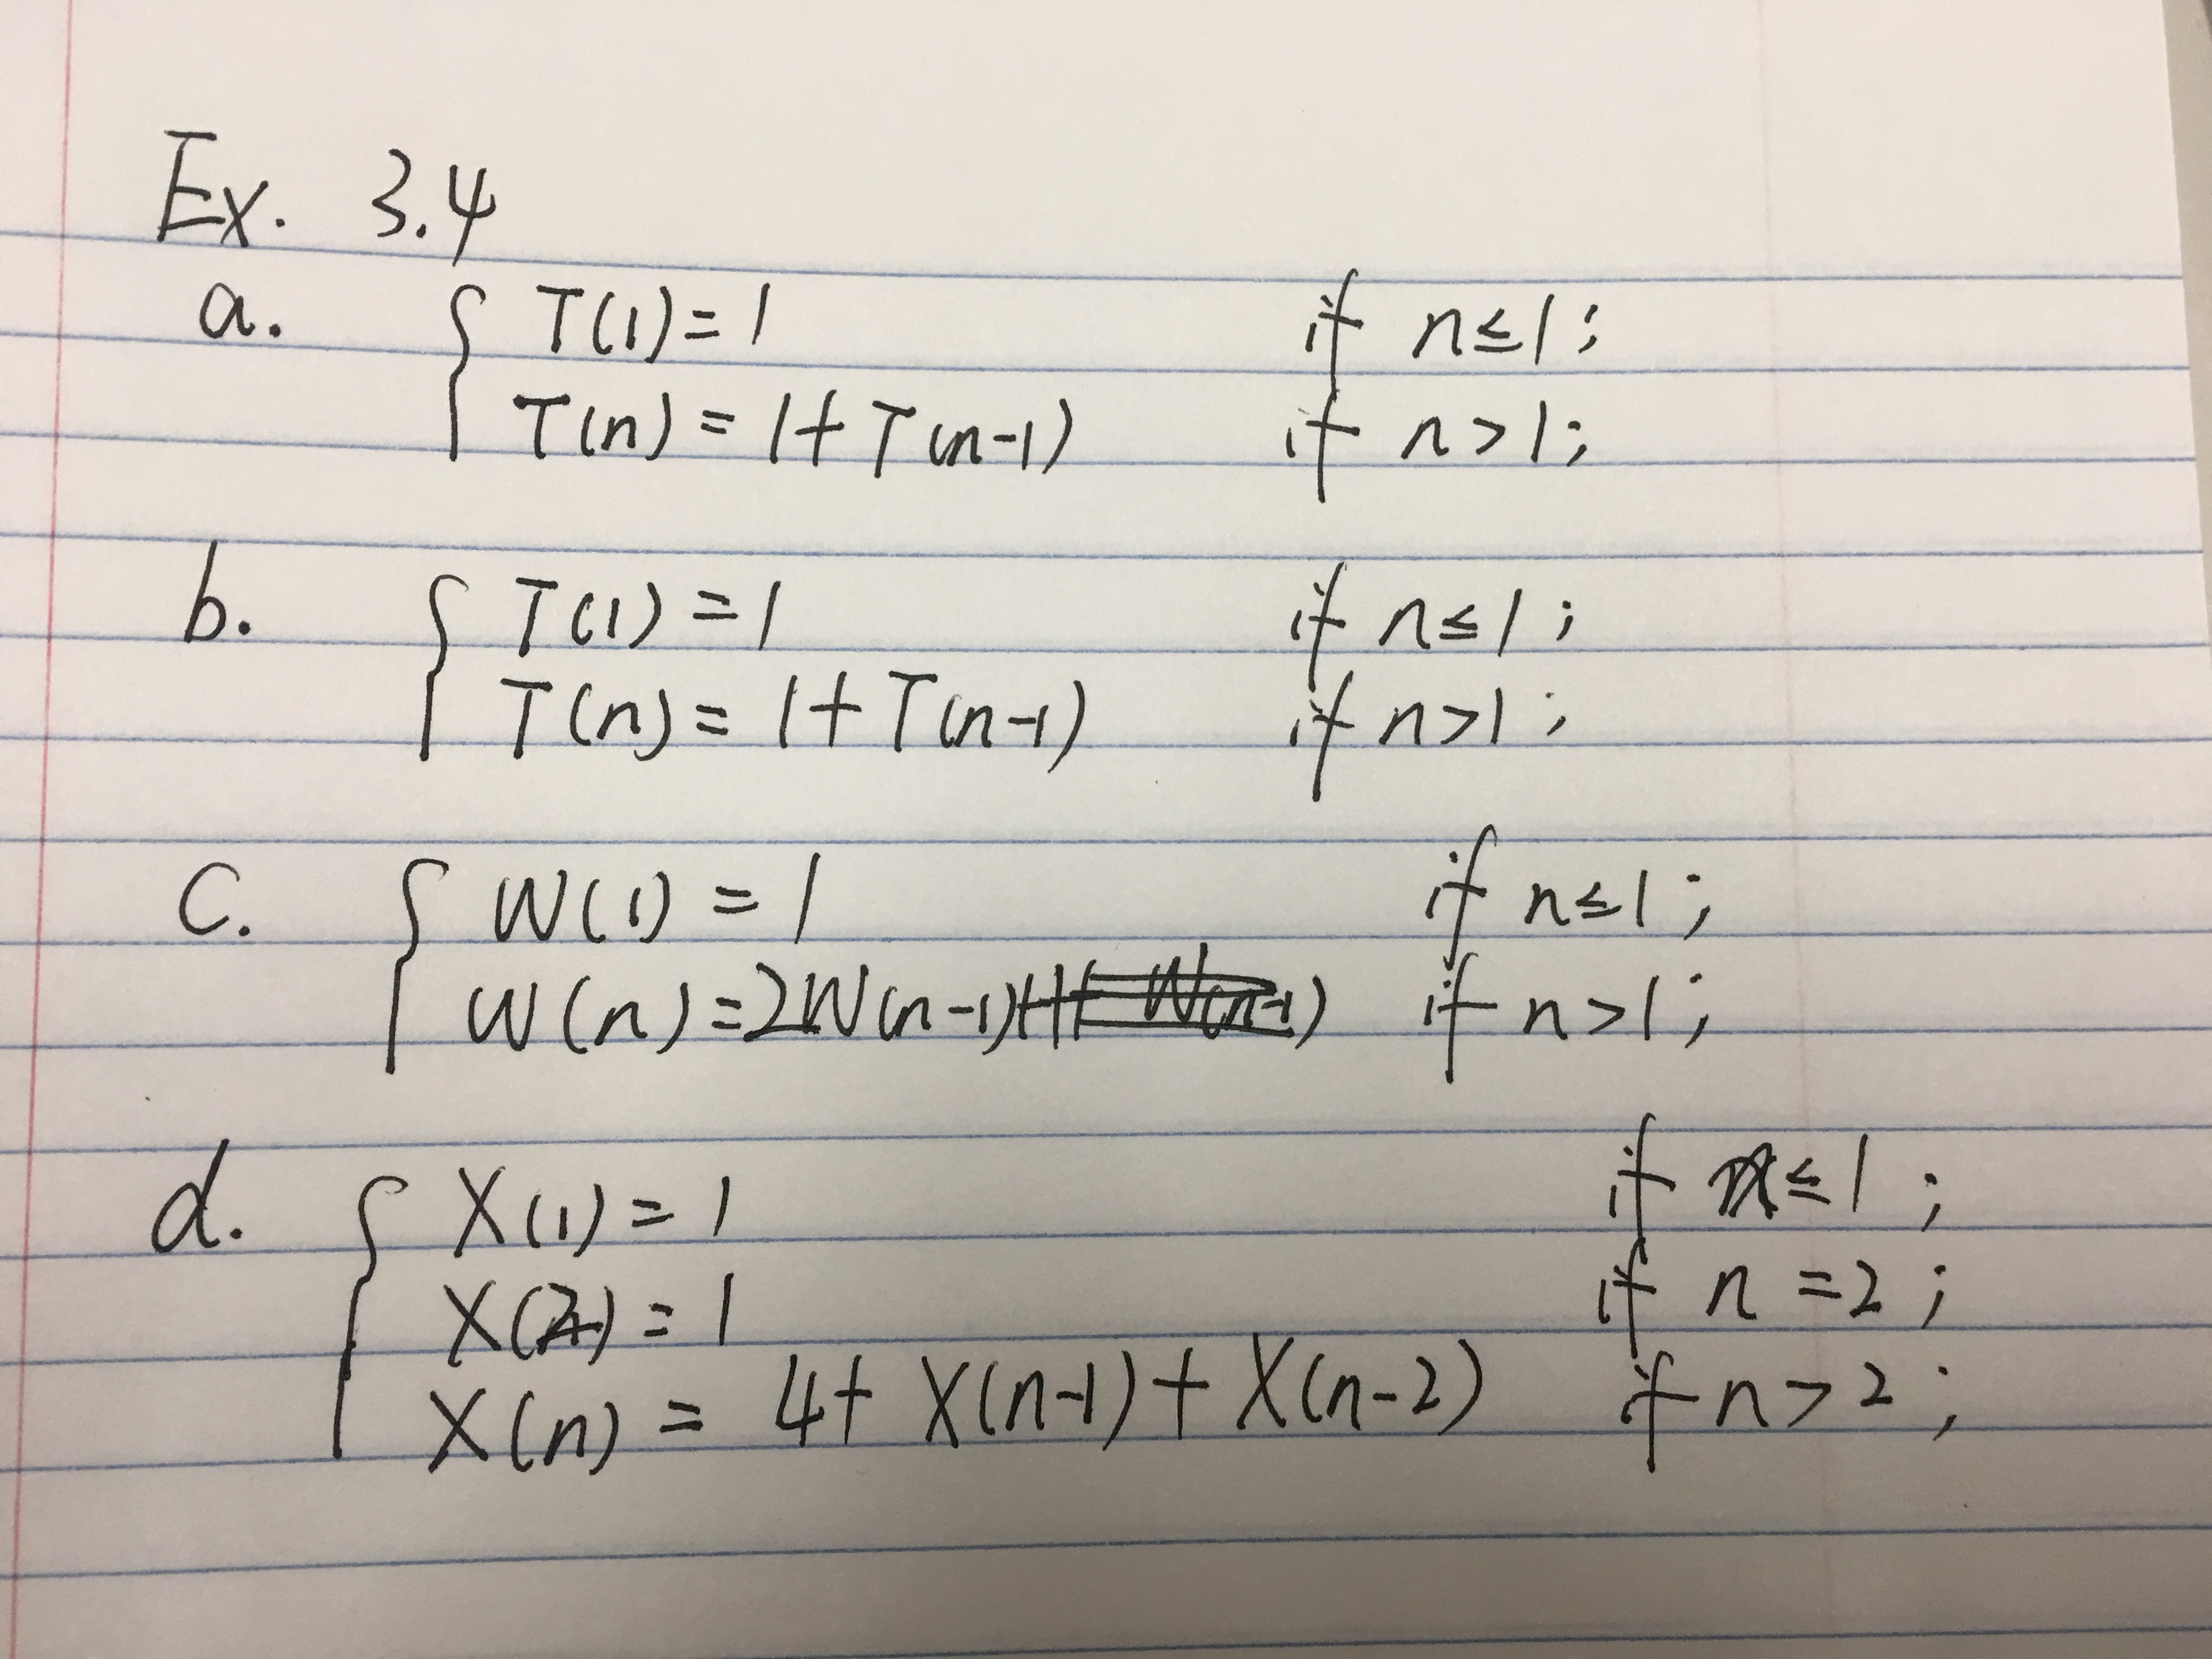 Ex. 3.4
a. { T(1) = 1 if n ≤ 1;
T(n) = 1 + T(n-1) if n > 1;
b. { T(1) = 1 if n ≤ 1;
T(n) = 1 + T(n-1) if n > 1;
c. { W(1) = 1 if n ≤ 1;
W(n) = 2W(n-1)+1 if n > 1;
d. { X(1) = 1 if n ≤ 1;
X(2) = 1 if n = 2;
X(n) = 4 + X(n-1) + X(n-2) if n > 2;